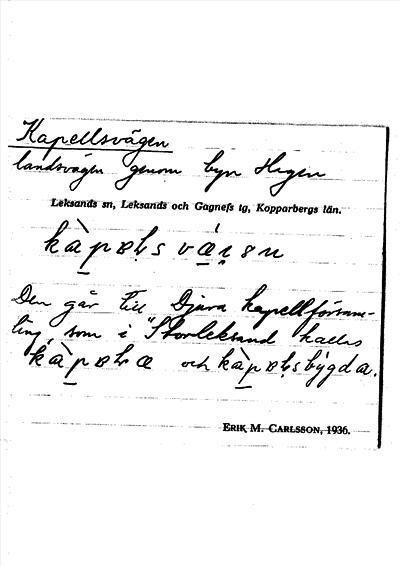 Kapellsvägen
landsvägen genom byn Hegen
Leksands sn, Leksands och Gagnefs tg, Kopparbergs län.
Den går till Djura kapellförsam-
ling, som i "Storleksand kallas
och
ERIK M. CARLSSON, 1936.